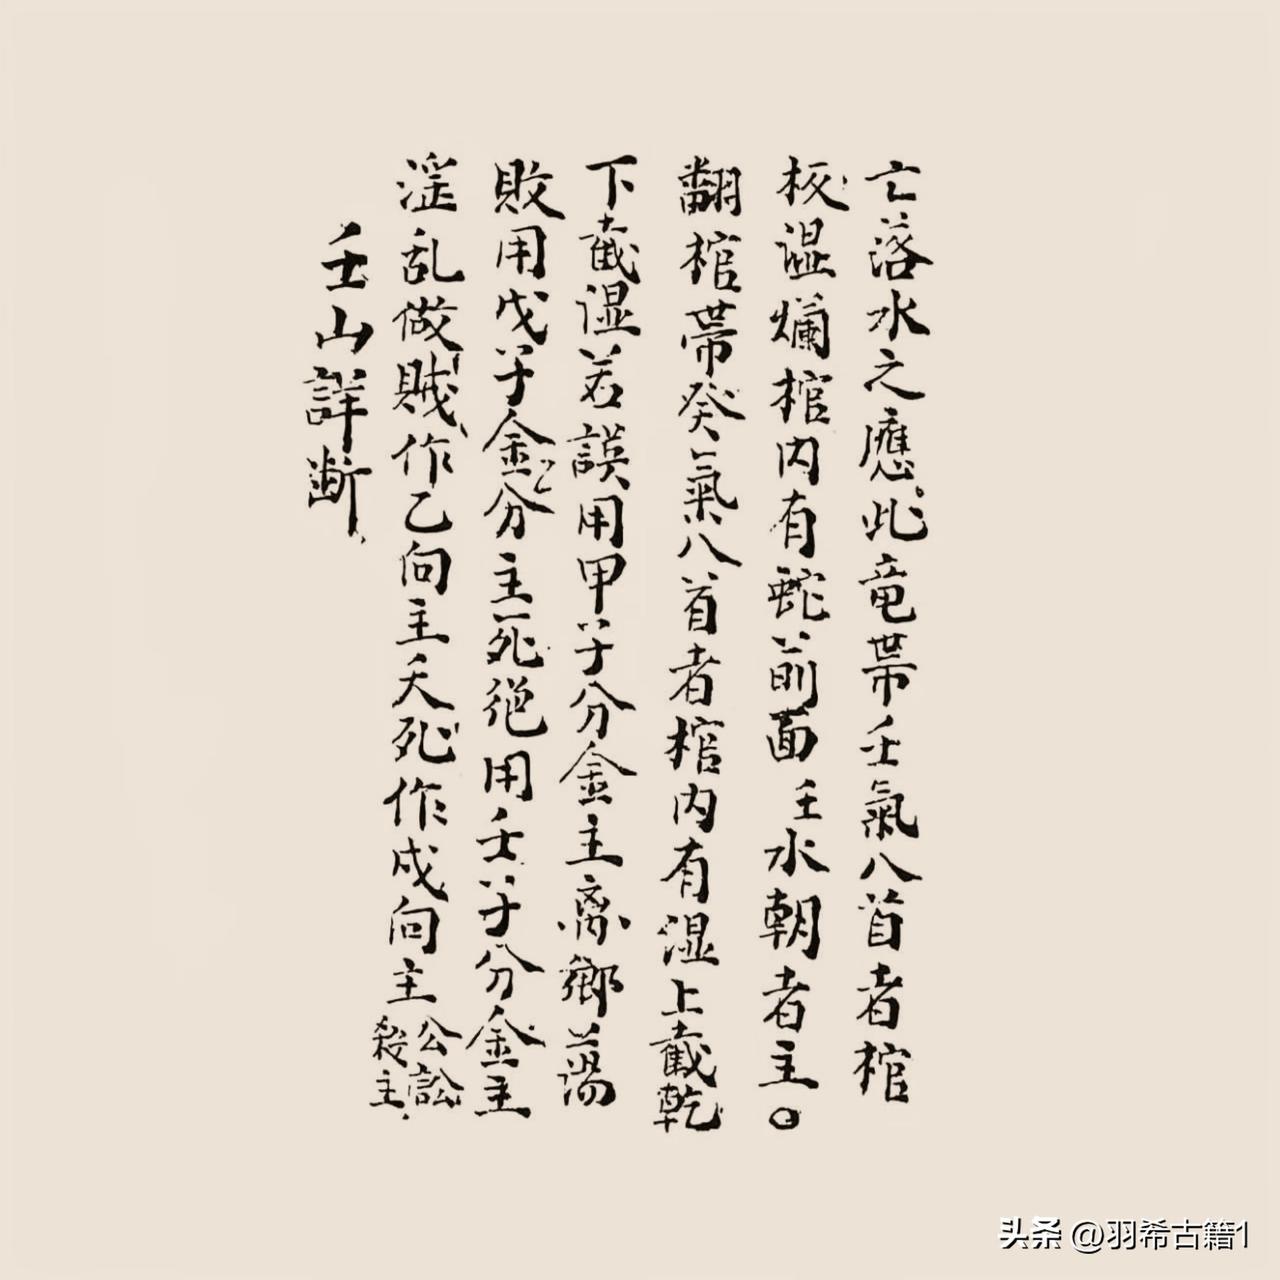 亡落水之應此竜帯壬氣八首者棺
板濕爛棺内有蛇前面壬水朝者主〇
翻棺帯癸氣八首者棺内有湿上截乾
下截湿若誤用甲子分金主离鄉蕩
敗用戊子金分主死绝用壬子分金主
淫乱做賊作乙向主夭死作戌向主公訟
殺主
壬山詳断
头条 @羽希古籍1